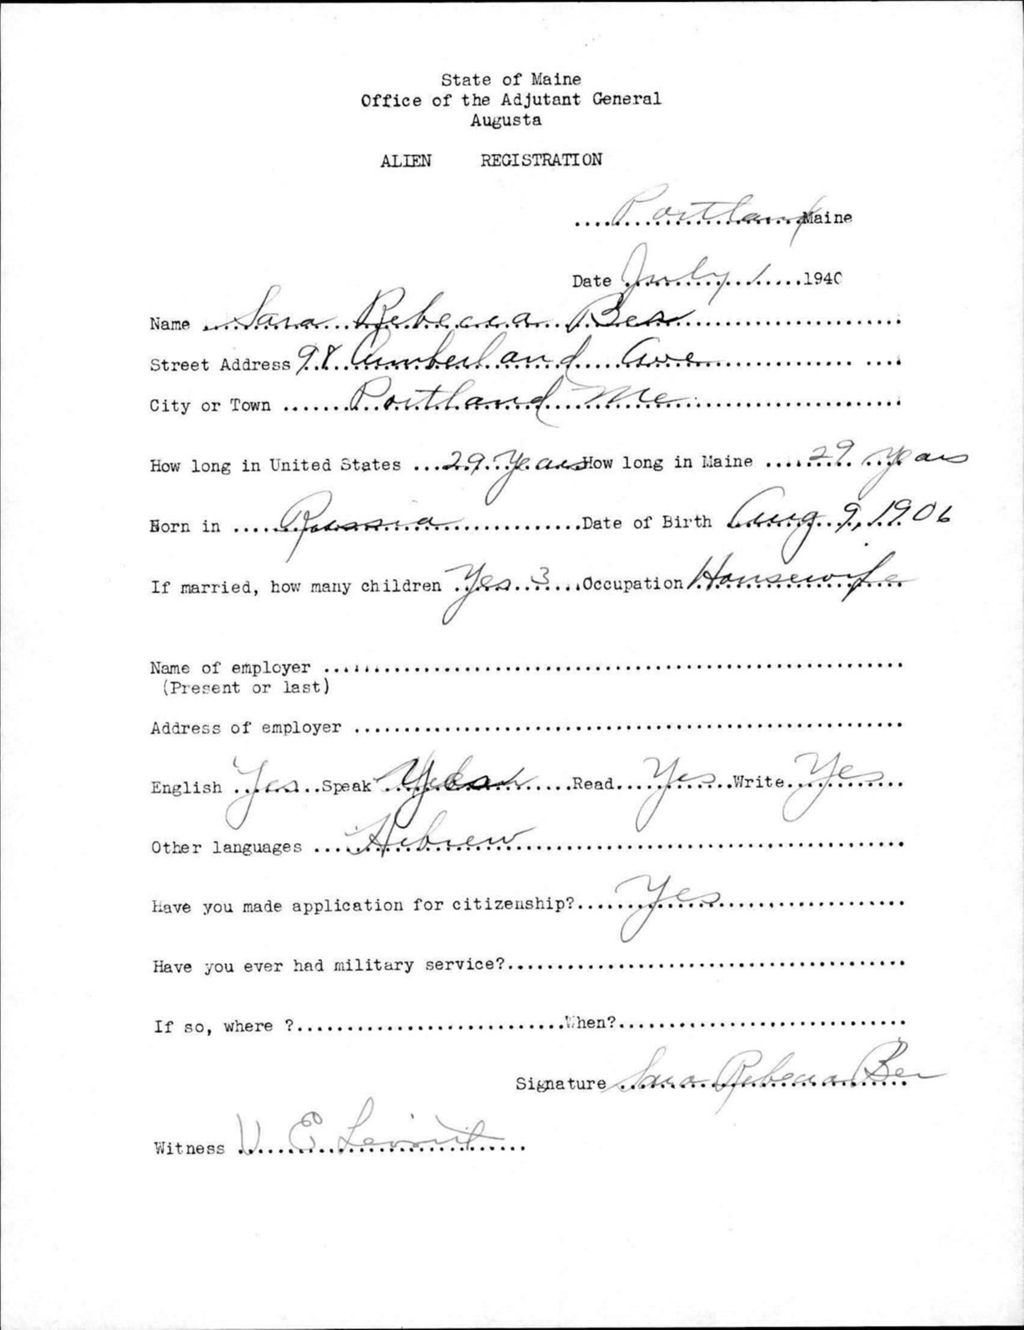 State of Maine
Office of the Adjutant General
Augusta
ALIEN REGISTRATION
Portland Maine
Date July 1 1940
Name Sara Rebecca Ber
Street Address 98 Cumberland Ave
City or Town Portland Me
How long in United States 29 Years How long in Maine 29 years
Born in Russia Date of Birth Aug 9, 1906
If married, how many children Yes 3 Occupation Housewife
Name of employer
(Present or last)
Address of employer
English Yes Speak Read Yes Write Yes
Other languages Hebrew
Have you made application for citizenship? Yes
Have you ever had military service?
If so, where ? When?
Signature Sara Rebecca Ber
Witness V. E.